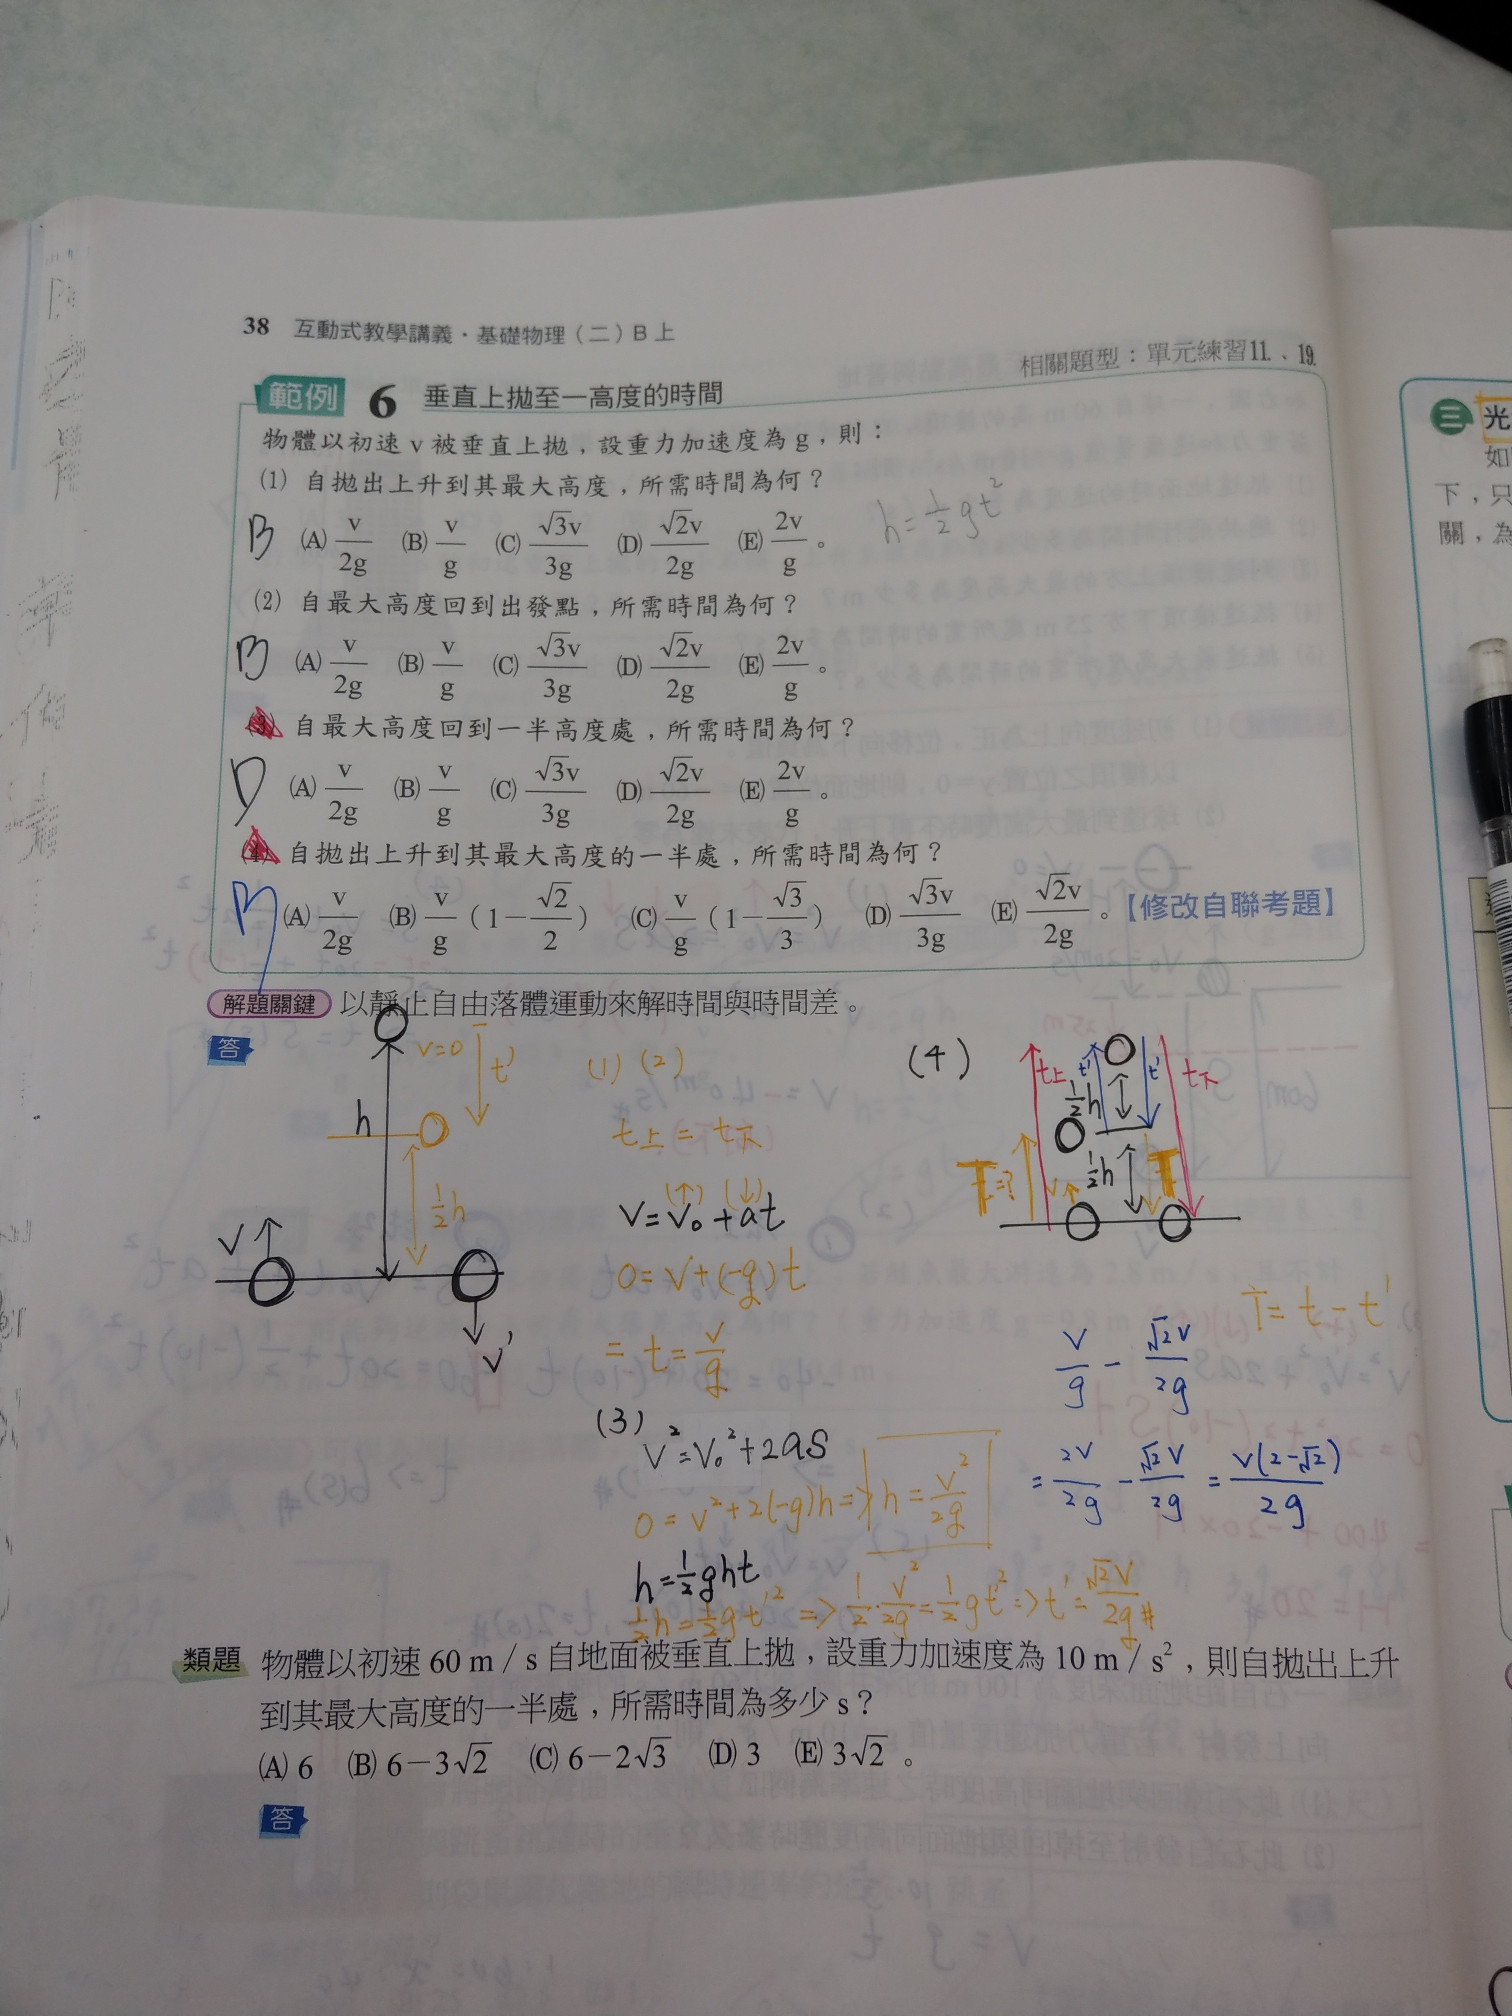 38 互動式教學講義・基礎物理（二）B上
相關題型：單元練習11.、19.
範例 6 垂直上拋至一高度的時間
物體以初速 v 被垂直上拋，設重力加速度為 g，則：
(1) 自拋出上升到其最大高度，所需時間為何？
h=½gt²
B (A) v/2g (B) v/g (C) √3v/3g (D) √2v/2g (E) 2v/g。
(2) 自最大高度回到出發點，所需時間為何？
B (A) v/2g (B) v/g (C) √3v/3g (D) √2v/2g (E) 2v/g。
(3) 自最大高度回到一半高度處，所需時間為何？
D (A) v/2g (B) v/g (C) √3v/3g (D) √2v/2g (E) 2v/g。
(4) 自拋出上升到其最大高度的一半處，所需時間為何？
B (A) v/2g (B) v/g（1－√2/2） (C) v/g（1－√3/3） (D) √3v/3g (E) √2v/2g。【修改自聯考題】
解題關鍵 以靜止自由落體運動來解時間與時間差。
答
v=0
t'
h
½h
v
v'
(1) (2)
t上 = t下
(↑) (↓)
v=v₀+at
0=v+(-g)t
= t=v/g
(3)
v²=v₀²+2aS
0=v²+2(-g)h=>h=v²/2g
h=½ght
½h=½gt'²=>½·v²/2g=½gt'²=>t'=√2v/2g#
(4)
t上 t' t' t下
½h
½h
T=? v T
T=t-t'
v/g - √2v/2g
= 2v/2g - √2v/2g = v(2-√2)/2g
類題 物體以初速 60 m／s 自地面被垂直上拋，設重力加速度為 10 m／s²，則自拋出上升
到其最大高度的一半處，所需時間為多少 s？
(A) 6 (B) 6－3√2 (C) 6－2√3 (D) 3 (E) 3√2。
答
三 光
如
下，只
關，為